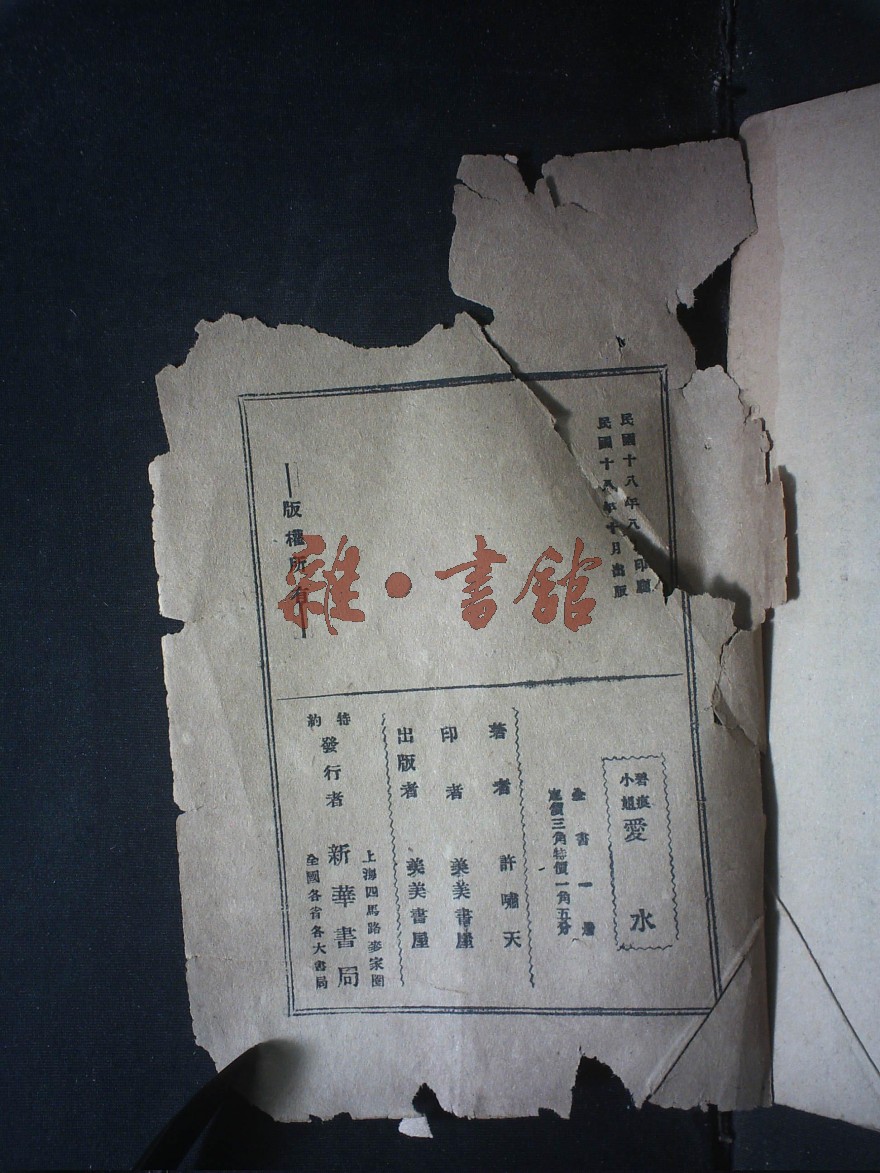 民國十八年八 印廳
民國十八年十月出版
版權所有
雜·書館
碧痕
小姐
愛水
全書一册
定價三角特價一角五分
著者 許嘯天
印者 美美書屋
出版者 美美書屋
特約
發行者 新華書局
上海四馬路麥家圈
全國各省各大書局